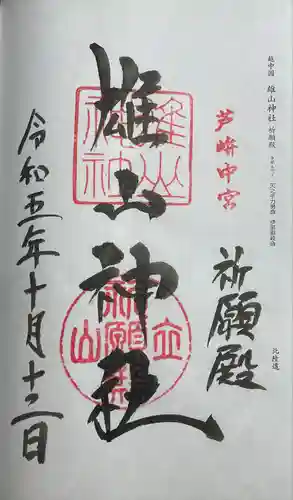 越中國 雄山神社 祈願殿
北陸道
芦峅中宮
祈願殿
雄山神社
令和五年十月十二日